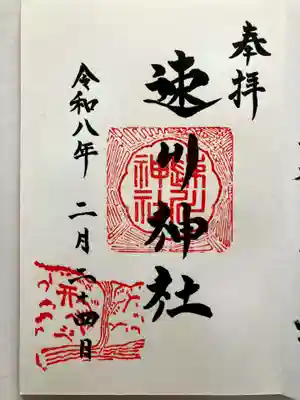 奉拝
速川神社
速川
神社
令和八年 二月二十四日